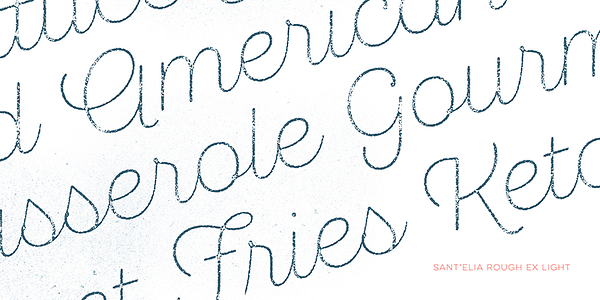 d American
asserole Gourm
et Fries Ket
SANT'ELIA ROUGH EX LIGHT